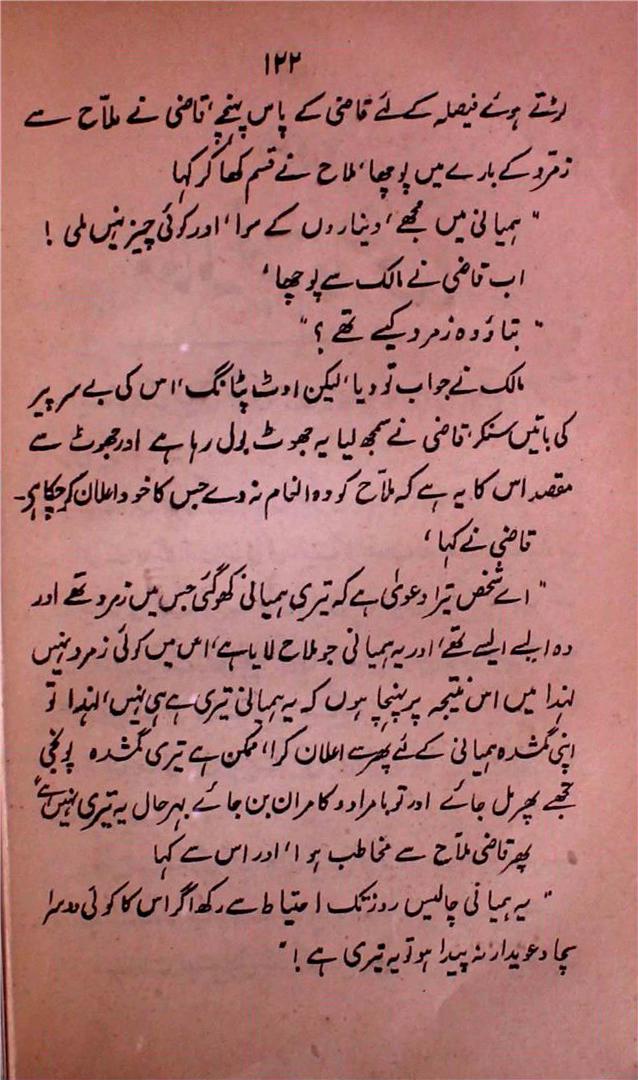 ۱۲۲
لڑتے ہوئے فیصلہ کے لئے قاضی کے پاس پہنچے، قاضی نے ملاّح سے
زمرد کے بارے میں پوچھا، ملاح نے قسم کھا کر کہا
"ہمیانی میں مجھے، دیناروں کے سوا، اور کوئی چیز نہیں ملی!
اب قاضی نے مالک سے پوچھا،
"بتاؤ وہ زمرد کیسے تھے؟"
مالک نے جواب تو دیا، لیکن اوٹ پٹانگ، اس کی بے سر پیر
کی باتیں سنکر، قاضی نے سمجھ لیا یہ جھوٹ بول رہا ہے اور جھوٹ سے
مقصد اس کا یہ ہے کہ ملاّح کو وہ انعام نہ دے جس کا خود اعلان کر چکا ہو۔
قاضی نے کہا،
"اے شخص تیرا دعویٰ ہے کہ تیری ہمیانی کھو گئی جس میں زمرد تھے اور
وہ ایسے ایسے تھے، اور یہ ہمیانی جو ملاح لایا ہے، اس میں کوئی زمرد نہیں
لہٰذا میں اس نتیجہ پر پہنچا ہوں کہ یہ ہمیانی تیری ہے ہی نہیں، لہٰذا تو
اپنی گمشدہ ہمیانی کے لئے پھر سے اعلان کرا، ممکن ہے تیری گمشدہ پونجی
تجھے پھر مل جائے اور تو بامراد و کامران بن جائے بہرحال یہ تیری نہیں ہے"
پھر قاضی ملاّح سے مخاطب ہوا، اور اس سے کہا
"یہ ہمیانی چالیس روز تک احتیاط سے رکھ اگر اس کا کوئی دوسرا
سچا دعویدار نہ پیدا ہو تو یہ تیری ہے!"